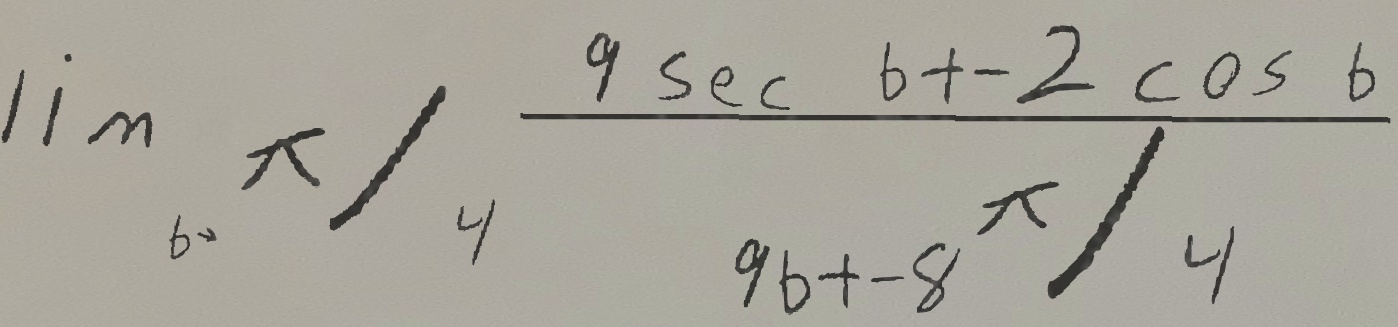 lim b→ π/4 9 sec b+-2 cos b
9b+-8 π/4